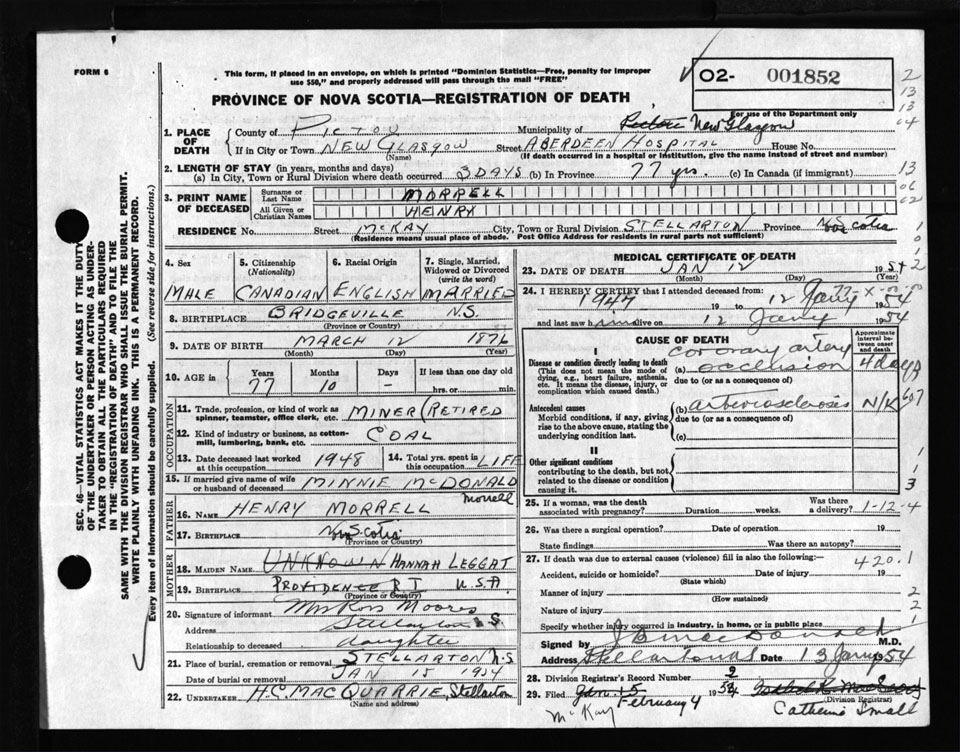 FORM 6
This form, if placed in an envelope, on which is printed "Dominion Statistics—Free, penalty for improper
use $50," and properly addressed will pass through the mail "FREE"
O2- 001852
For use of the Department only
PROVINCE OF NOVA SCOTIA—REGISTRATION OF DEATH
1. PLACE OF DEATH
County of PICTOU Municipality of New Glasgow
If in City or Town NEW GLASGOW (Name) Street ABERDEEN HOSPITAL House No.
(If death occurred in a hospital or institution, give the name instead of street and number)
2. LENGTH OF STAY (in years, months and days)
(a) In City, Town or Rural Division where death occurred 3 DAYS (b) In Province 77 yrs. (c) In Canada (if immigrant)
3. PRINT NAME OF DECEASED
Surname or Last Name MORRELL
All Given or Christian Names HENRY
RESIDENCE No. Street McKAY City, Town or Rural Division STELLARTON Province N. Scotia
(Residence means usual place of abode. Post Office Address for residents in rural parts not sufficient)
4. Sex MALE
5. Citizenship (Nationality) CANADIAN
6. Racial Origin ENGLISH
7. Single, Married, Widowed or Divorced (write the word) MARRIED
8. BIRTHPLACE BRIDGEVILLE N.S.
(Province or Country)
9. DATE OF BIRTH MARCH 12 1876
(Month) (Day) (Year)
10. AGE in Years 77 Months 10 Days - If less than one day old hrs. or min.
OCCUPATION
11. Trade, profession, or kind of work as spinner, teamster, office clerk, etc. MINER (RETIRED
12. Kind of industry or business, as cotton-mill, lumbering, bank, etc. COAL
13. Date deceased last worked at this occupation 1948
14. Total yrs. spent in this occupation LIFE
15. If married give name of wife or husband of deceased MINNIE McDONALD
Morrell
FATHER
16. NAME HENRY MORRELL
17. BIRTHPLACE N. Scotia
(Province or Country)
MOTHER
18. MAIDEN NAME UNKNOWN HANNAH LEGGAT
19. BIRTHPLACE PROVIDENCE R I U.S.A.
(Province or Country)
20. Signature of informant Mrs Ross Moores
Address Stellarton N S
Relationship to deceased daughter
21. Place of burial, cremation or removal STELLARTON N.S
Date of burial or removal JAN 15 1954
22. UNDERTAKER H.C. MACQUARRIE, Stellarton
(Name and address)
MEDICAL CERTIFICATE OF DEATH
23. DATE OF DEATH JAN 12 1954
(Month) (Day) (Year)
24. I HEREBY CERTIFY that I attended deceased from:
1947 19 to 12 Jany 1954
and last saw him alive on 12 Jany 1954
CAUSE OF DEATH
Approximate interval between onset and death
I
Disease or condition directly leading to death
(This does not mean the mode of dying, e.g., heart failure, asthenia, etc. It means the disease, injury, or complication which caused death.)
(a) coronary artery occlusion 4 days
due to (or as a consequence of)
Antecedent causes
Morbid conditions, if any, giving rise to the above cause, stating the underlying condition last.
(b) arteriosclerosis N/K
due to (or as a consequence of)
(c)
II
Other significant conditions
contributing to the death, but not related to the disease or condition causing it.
25. If a woman, was the death associated with pregnancy? Duration weeks. Was there a delivery? 1-12-4
26. Was there a surgical operation? Date of operation 19
State findings Was there an autopsy?
27. If death was due to external causes (violence) fill in also the following:—
420.1
Accident, suicide or homicide? Date of injury 19
(State which)
Manner of injury
(How sustained)
Nature of injury
Specify whether injury occurred in industry, in home, or in public place
Signed by J B MacDonald M.D.
Address Stellarton NS Date 13 Jany 1954
28. Division Registrar's Record Number 2
29. Filed Jan 15 1954
February 4
(Division Registrar)
McKay
Catherine Small
SEC. 46—VITAL STATISTICS ACT MAKES IT THE DUTY
OF THE UNDERTAKER OR PERSON ACTING AS UNDER-
TAKER TO OBTAIN ALL THE PARTICULARS REQUIRED
IN THE "REGISTRATION OF DEATH" AND TO FILE THE
SAME WITH THE DIVISION REGISTRAR WHO SHALL ISSUE THE BURIAL PERMIT.
WRITE PLAINLY WITH UNFADING INK. THIS IS A PERMANENT RECORD.
Every item of information should be carefully supplied. (See reverse side for instructions.)